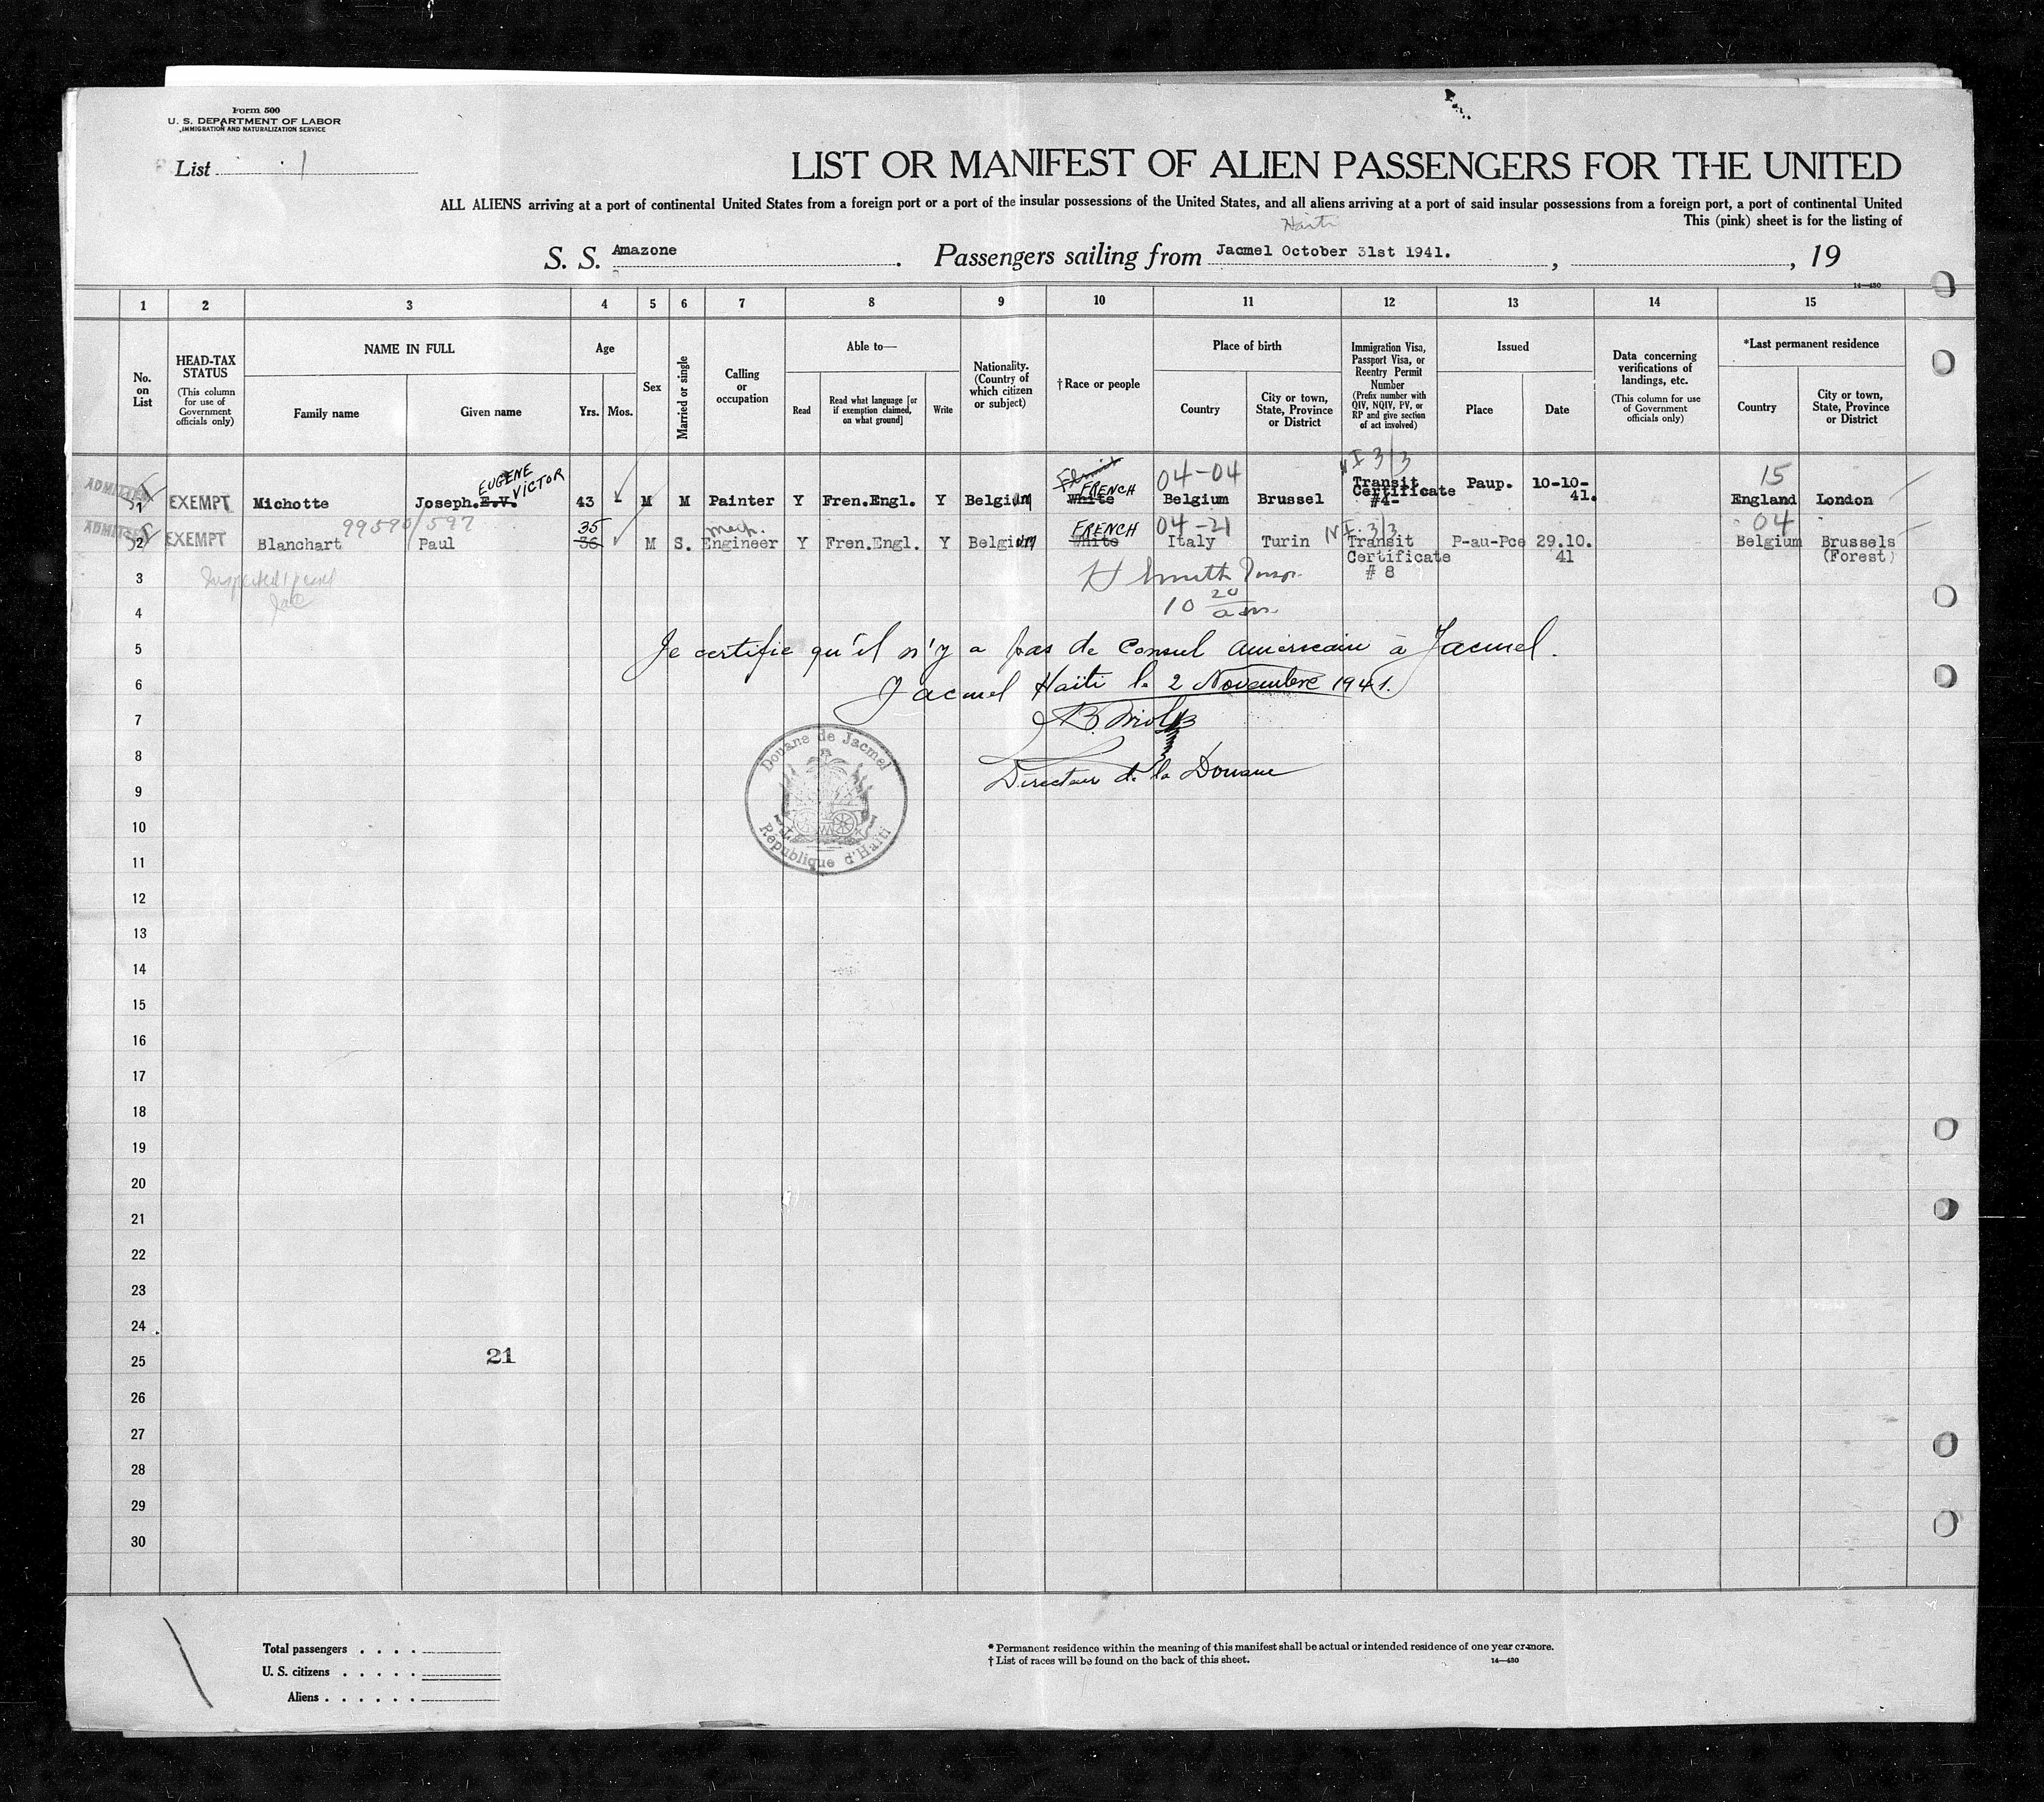 Form 500
U. S. DEPARTMENT OF LABOR
IMMIGRATION AND NATURALIZATION SERVICE
List 1
LIST OR MANIFEST OF ALIEN PASSENGERS FOR THE UNITED
ALL ALIENS arriving at a port of continental United States from a foreign port or a port of the insular possessions of the United States, and all aliens arriving at a port of said insular possessions from a foreign port, a port of continental United
This (pink) sheet is for the listing of
Haiti
S. S. Amazone. Passengers sailing from Jacmel October 31st 1941. , , 19
14—430
1 2 3 4 5 6 7 8 9 10 11 12 13 14 15
No. on List
HEAD-TAX STATUS
(This column for use of Government officials only)
NAME IN FULL
Family name
Given name
Age
Yrs. Mos.
Sex
Married or single
Calling or occupation
Able to—
Read
Read what language [or if exemption claimed, on what ground]
Write
Nationality. (Country of which citizen or subject)
†Race or people
Place of birth
Country
City or town, State, Province or District
Immigration Visa, Passport Visa, or Reentry Permit Number
(Prefix number with QIV, NQIV, PV, or RP and give section of act involved)
Issued
Place
Date
Data concerning verifications of landings, etc.
(This column for use of Government officials only)
*Last permanent residence
Country
City or town, State, Province or District
EUGENE VICTOR FRENCH 04-04 I 3/3 15
ADMITTED 1 EXEMPT Michotte Joseph.E.V. 43 - M M Painter Y Fren.Engl. Y Belgium White Belgium Brussel Transit Certificate #4- Paup. 10-10-41. England London
99590/597 35 mech. FRENCH 04-21 NI 3/3 04
ADMITTED 2 EXEMPT Blanchart Paul 36 M S. Engineer Y Fren.Engl. Y Belgium White Italy Turin Transit Certificate # 8 P-au-Pce 29.10.41 Belgium Brussels (Forest)
3
H Smith Insp.
4
10 20 a.m.
5 Je certifie qu'il n'y a pas de Consul américain à Jacmel.
6 Jacmel Haïti le 2 Novembre 1941.
7
8
Directeur de la Douane
Douane de Jacmel
République d'Haïti
9
10
11
12
13
14
15
16
17
18
19
20
21
22
23
24
25 21
26
27
28
29
30
Total passengers . . . .
U. S. citizens . . . . .
Aliens . . . . . .
* Permanent residence within the meaning of this manifest shall be actual or intended residence of one year or more.
† List of races will be found on the back of this sheet.
14—430